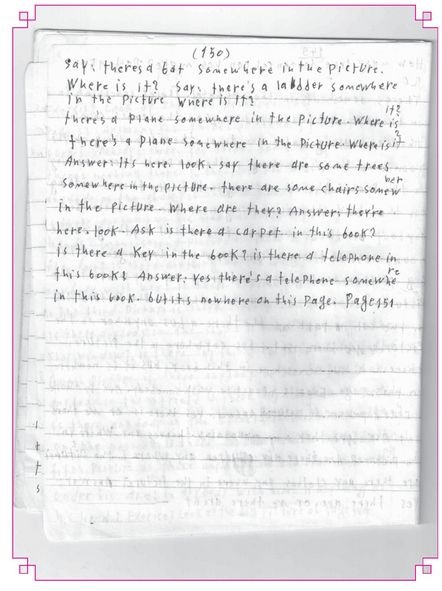 (150)
say: theres a bat somewhere in the picture.
Where is it? say: there's a ladder somewhere
in the picture Where is it?
there's a plane somewhere in the picture. Where is it?
there's a plane somewhere in the picture. Where is it?
Answer: Its here. look. say there are some trees
somewhere in the picture. there are some chairs somewher
in the picture. Where are they? Answer: they're
here. look. Ask is there a carpet in this book?
is there a Key in the book? is there a telephone in
this book? Answer: yes there's a telephone somewhere
in this book. but its nowhere on this page. Page 151